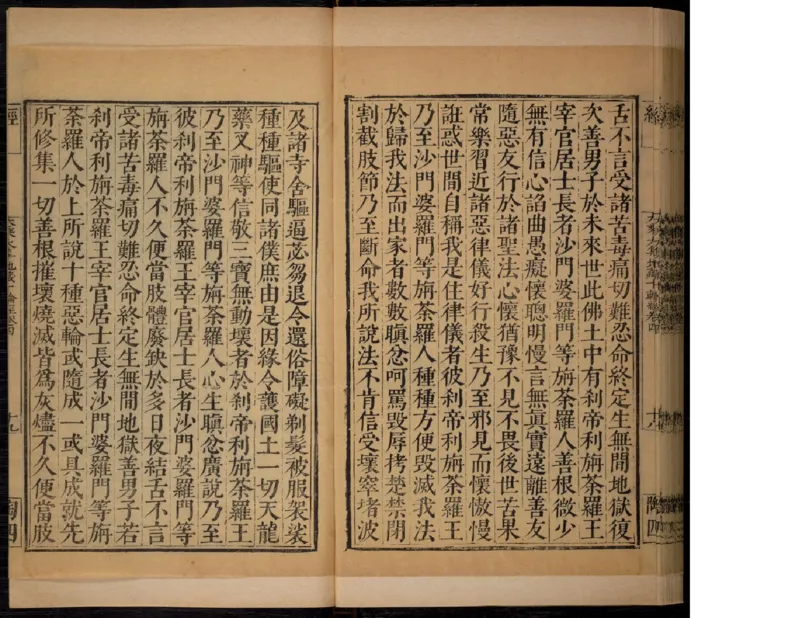 舌不言受諸苦毒痛切難忍命終定生無間地獄復
次善男子於未來世此佛土中有刹帝利旃荼羅王
宰官居士長者沙門婆羅門等旃荼羅人善根微少
無有信心諂曲愚癡懷聰明慢言無眞實遠離善友
隨惡友行於諸聖法心懷猶豫不見不畏後世苦果
常樂習近諸惡律儀好行殺生乃至邪見而懷憿慢
誑惑世間自稱我是住律儀者彼刹帝利旃荼羅王
乃至沙門婆羅門等旃荼羅人種種方便毀滅我法
於歸我法而出家者數數瞋忿呵罵毀辱拷楚禁閉
割截肢節乃至斷命我所說法不肯信受壞窣堵波
及諸寺舍驅逼苾芻退令還俗障礙剃髮被服袈裟
種種驅使同諸僕庶由是因緣令護國土一切天龍
藥叉神等信敬三寶無動壞者於刹帝利旃荼羅王
乃至沙門婆羅門等旃荼羅人心生瞋忿廣說乃至
彼刹帝利旃荼羅王宰官居士長者沙門婆羅門等
旃荼羅人不久便當肢體廢缺於多日夜結舌不言
受諸苦毒痛切難忍命終定生無間地獄善男子若
刹帝利旃荼羅王宰官居士長者沙門婆羅門等旃
荼羅人於上所說十種惡輪或隨成一或具成就先
所修集一切善根摧壞燒滅皆爲灰燼不久便當肢
經
十九
陶四